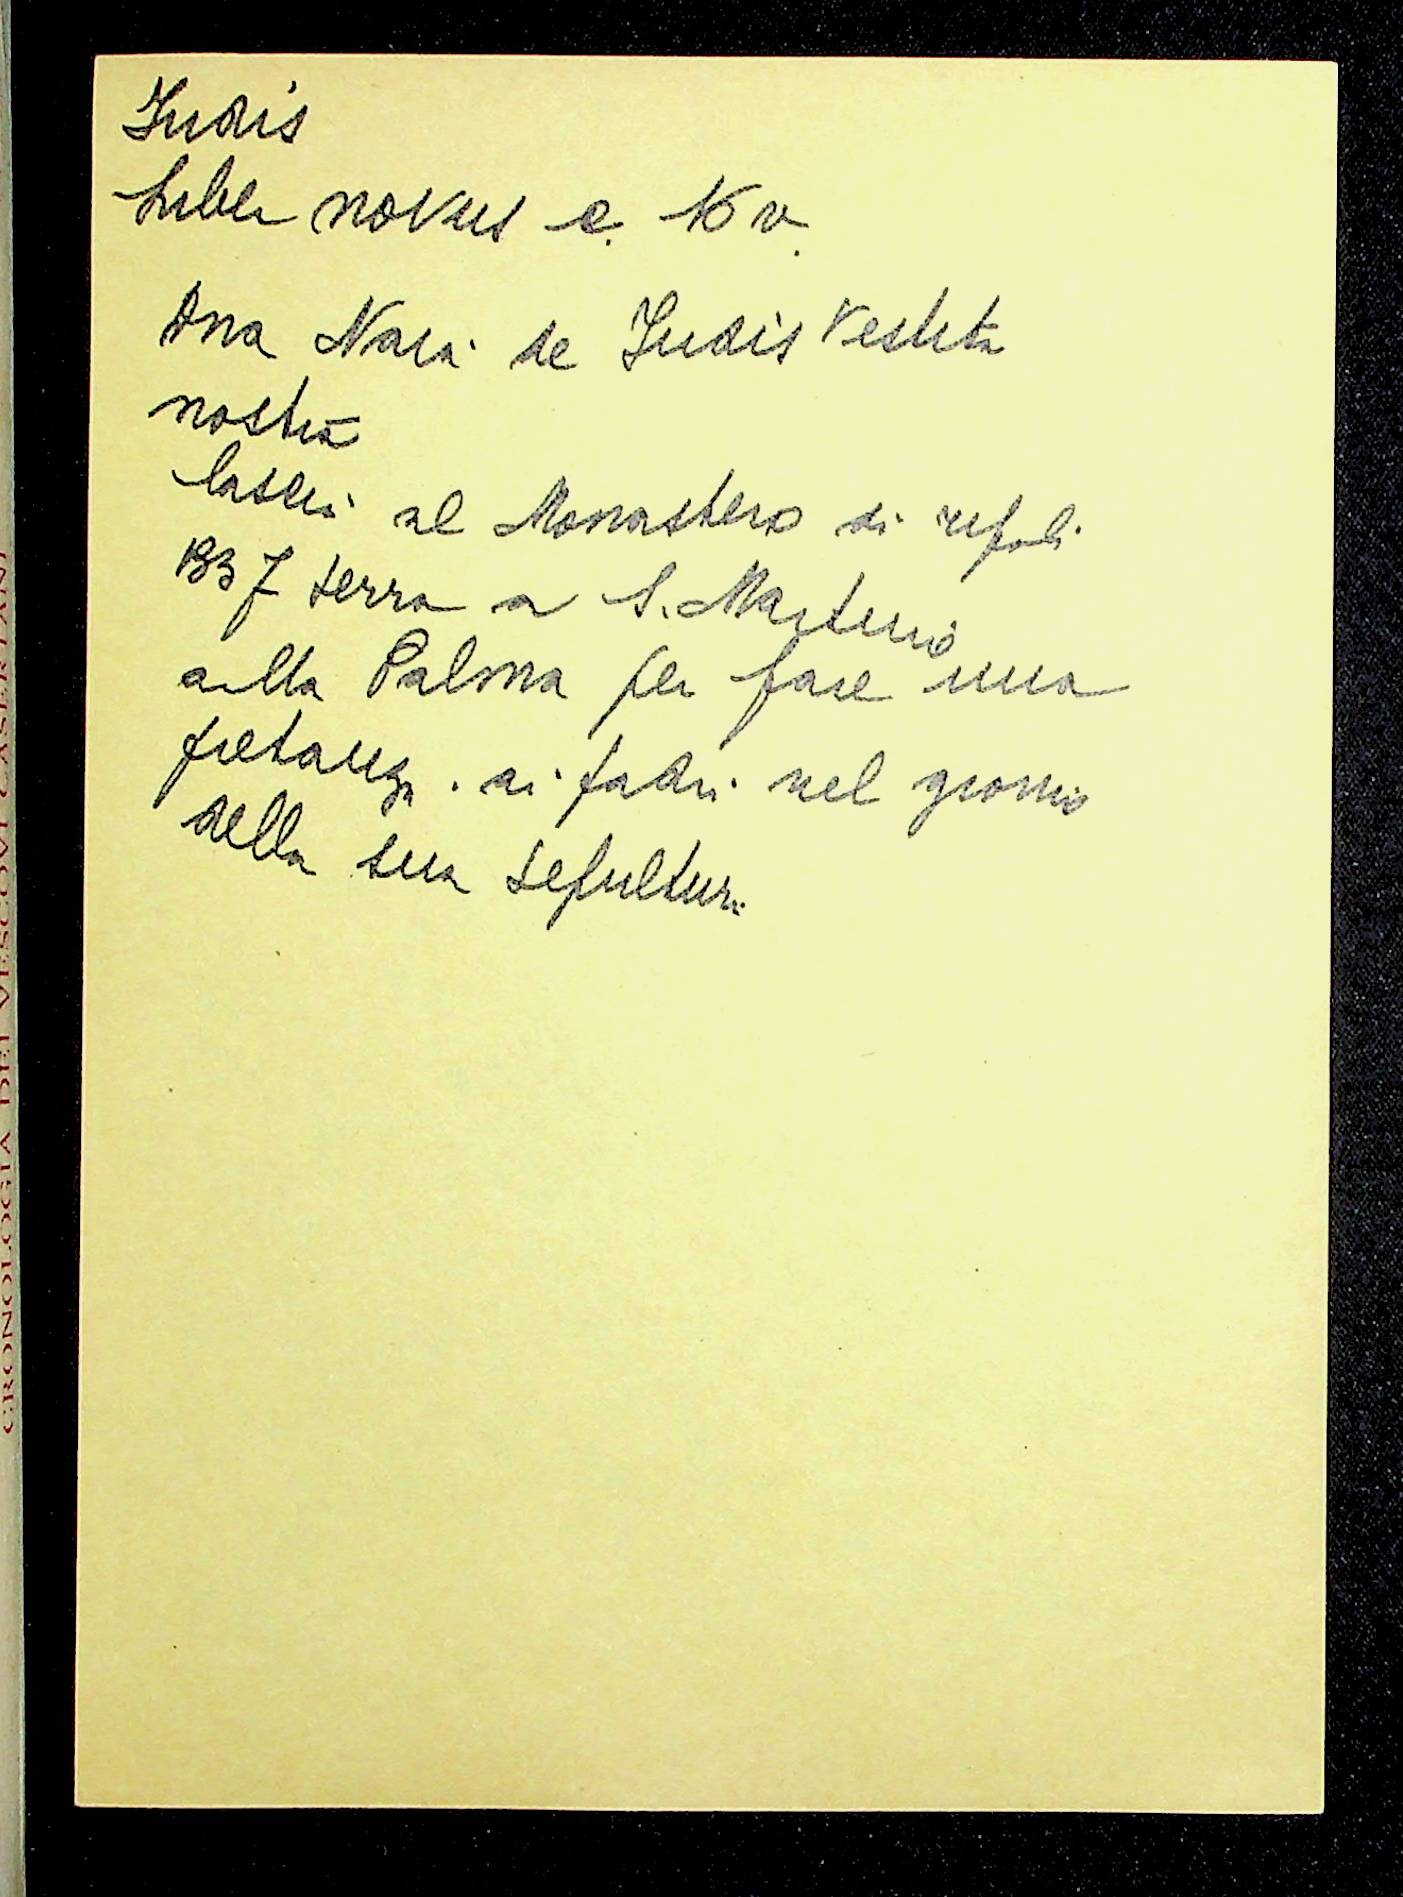 Iudis
Liber novus c. 10 v.
Dna Nara de Iudis Vestita
nostra
lasciò al Monastero di ripoli
1337 terra a S. Martino
alla Palma per fare una
pietanza ai padri nel giorno
della sua sepoltura
CRONOLOGIA DEI VESCOVI CASERTANI